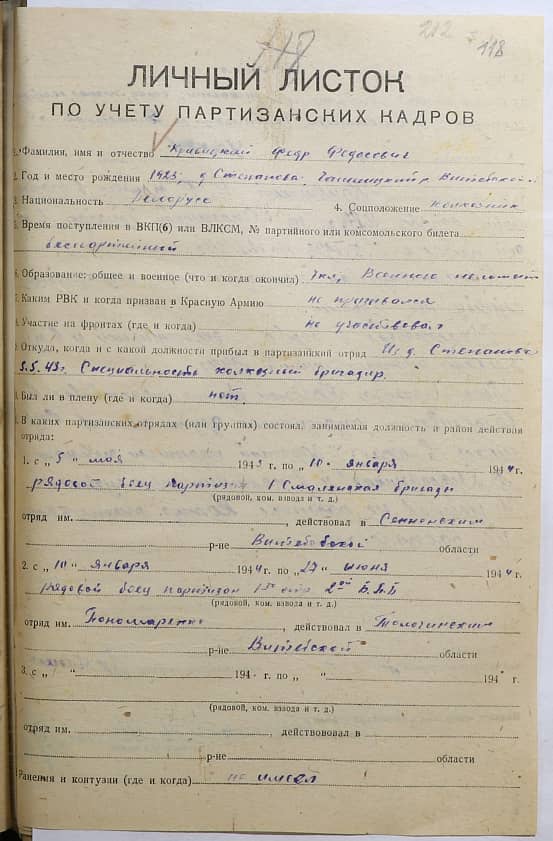 118
212
118
ЛИЧНЫЙ ЛИСТОК
ПО УЧЕТУ ПАРТИЗАНСКИХ КАДРОВ
Фамилия, имя и отчество Кривицкий Федр Федосович
Год и место рождения 1923, д. Степаново Чашницкий р. Витебской
Национальность Белорус 4. Соцположение колхозник
Время поступления в ВКП(б) или ВЛКСМ, № партийного или комсомольского билета
беспартийный
Образование: общее и военное (что и когда окончил) Военного
Каким РВК и когда призван в Красную Армию не призывался
Участие на фронтах (где и когда) не участвовал
Откуда, когда и с какой должности прибыл в партизанский отряд Из д. Степаново
5.5.43г. Специальность колхозный бригадир.
Был ли в плену (где и когда) нет.
В каких партизанских отрядах (или группах) состоял, занимаемая должность и район действия
отряда:
1. с „5" мая 1943 г. по „10" января 1944 г.
рядовой боец партизан 1 Смоленская бригады
(рядовой, ком. взвода и т. д.)
отряд им. , действовал в Сенненском
р-не Витебской области
2. с „10" января 1944 г. по „27" июня 1944 г.
рядовой боец партизан 1ый отр. 2ой Б.П.Б
(рядовой, ком. взвода и т. д.)
отряд им. Пономаренко , действовал в Толочинском
р-не Витебской области
3. с „ " 194 г. по „ " 194 г.
(рядовой, ком. взвода и т. д.)
отряд им. , действововал в
р-не области
Ранения и контузии (где и когда) не имел